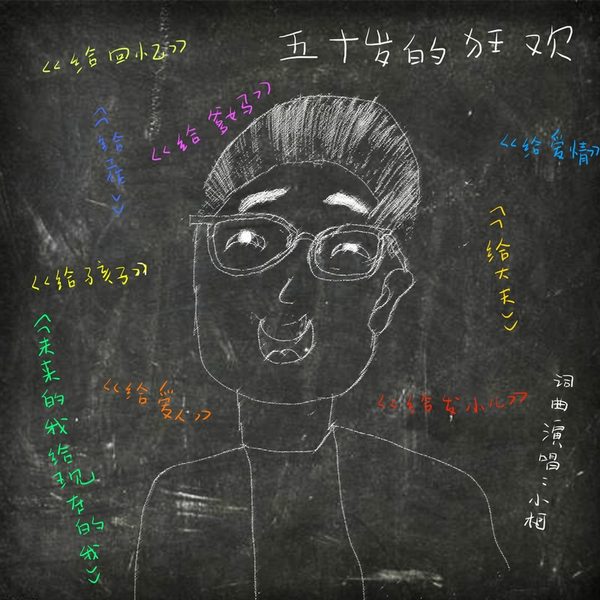 五十岁的狂欢
《给回忆》
《给爹妈》
《给爱情》
《给大王》
《给孩子》
《未来的我给现在的我》
《给爱人》
《给发小儿》
词曲演唱:小柯